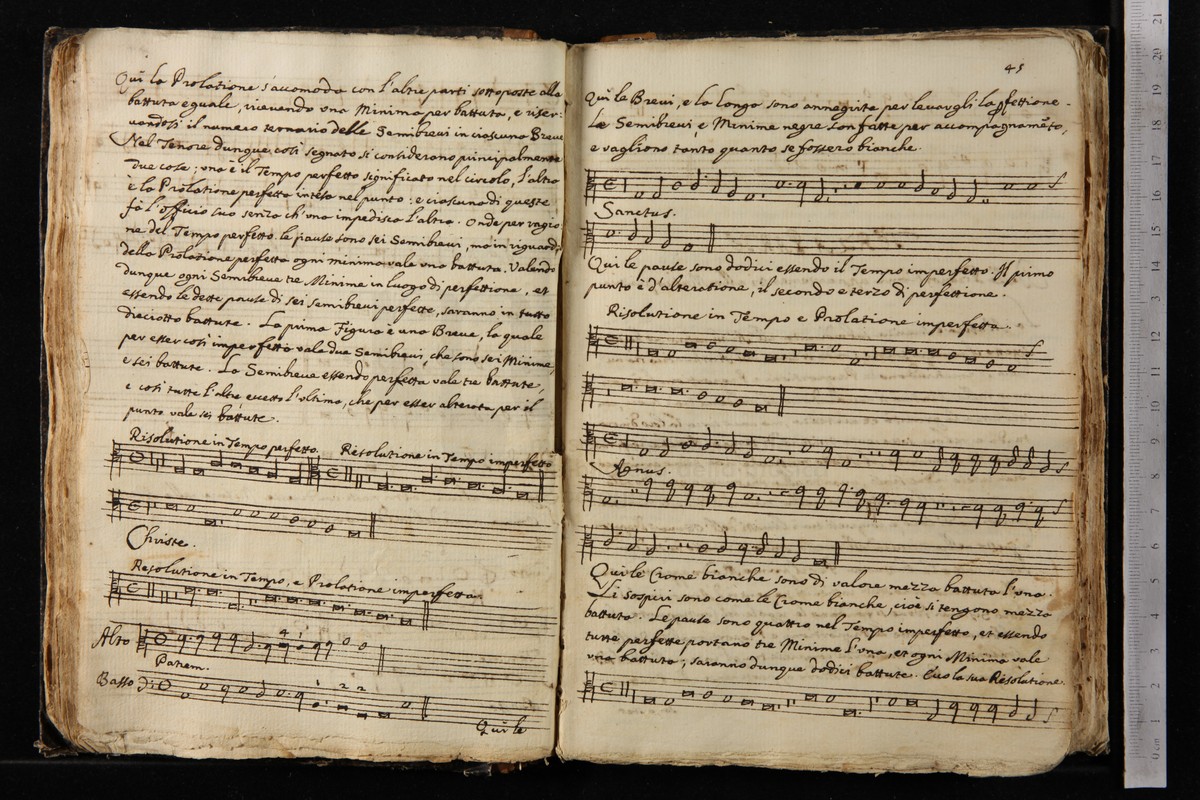 Qui la Prolatione s'accomoda con l'altre parti sottoposte alla
battuta eguale, ricevendo una Minima per battuta, e riser-
vandosi il numero ternario delle Semibrevi in ciascuna Breve
Nel Tenore dunque così segnato si considerano principalmente
due cose; una è il Tempo perfetto significato nel circolo, l'altra
è la Prolatione perfetta intesa nel punto: e ciascuna di queste
fa l'officio suo senza ch'una impedisca l'altra. Onde per ragio
ne del Tempo perfetto le pause sono sei Semibrevi, ma in riguardo
della Prolatione perfetta ogni minima vale una battuta. Valendo
dunque ogni Semibreve tre Minime in luogo di perfettione, et
essendo le dette pause di sei semibrevi perfette, saranno in tutto
dieciotto battute. La prima Figura è una Breve, la quale
per esser così imperfetta vale due Semibrevi, che sono sei Minime,
e sei battute. La Semibreve essendo perfetta vale tre battute,
e così tutte l'altre eccetto l'ultima, che per esser alterata per il
punto vale sei battute.
Risolutione in Tempo perfetto. Risolutione in Tempo imperfetto
Christe.
Resolutione in Tempo, e Prolatione imperfetta.
Alto
4 1
Patrem.
Basso
1 2 2
Qui le
45
Qui le Brevi, e la longa sono annegrite per levargli la perfettione.
Le Semibrevi, e Minime negre son fatte per accompagnamẽto,
e vagliono tanto quanto se fossero bianche.
Sanctus.
Qui le pause sono dodici essendo il Tempo imperfetto. Il primo
punto è d'alteratione, il secondo e terzo di perfettione.
Risolutione in Tempo e Prolatione imperfetta.
Agnus.
Qui le Crome bianche sono di valore mezza battuta l'una.
Li sospiri sono come le Crome bianche, cioè si tengono mezza
battuta. Le pause sono quattro nel Tempo imperfetto, et essendo
tutte perfette portano tre Minime l'una, et ogni Minima vale
una battuta, saranno dunque dodici battute. Ecco la sua Resolutione.
0 cm 1 2 3 4 5 6 7 8 9 10 11 12 13 14 15 16 17 18 19 20 21